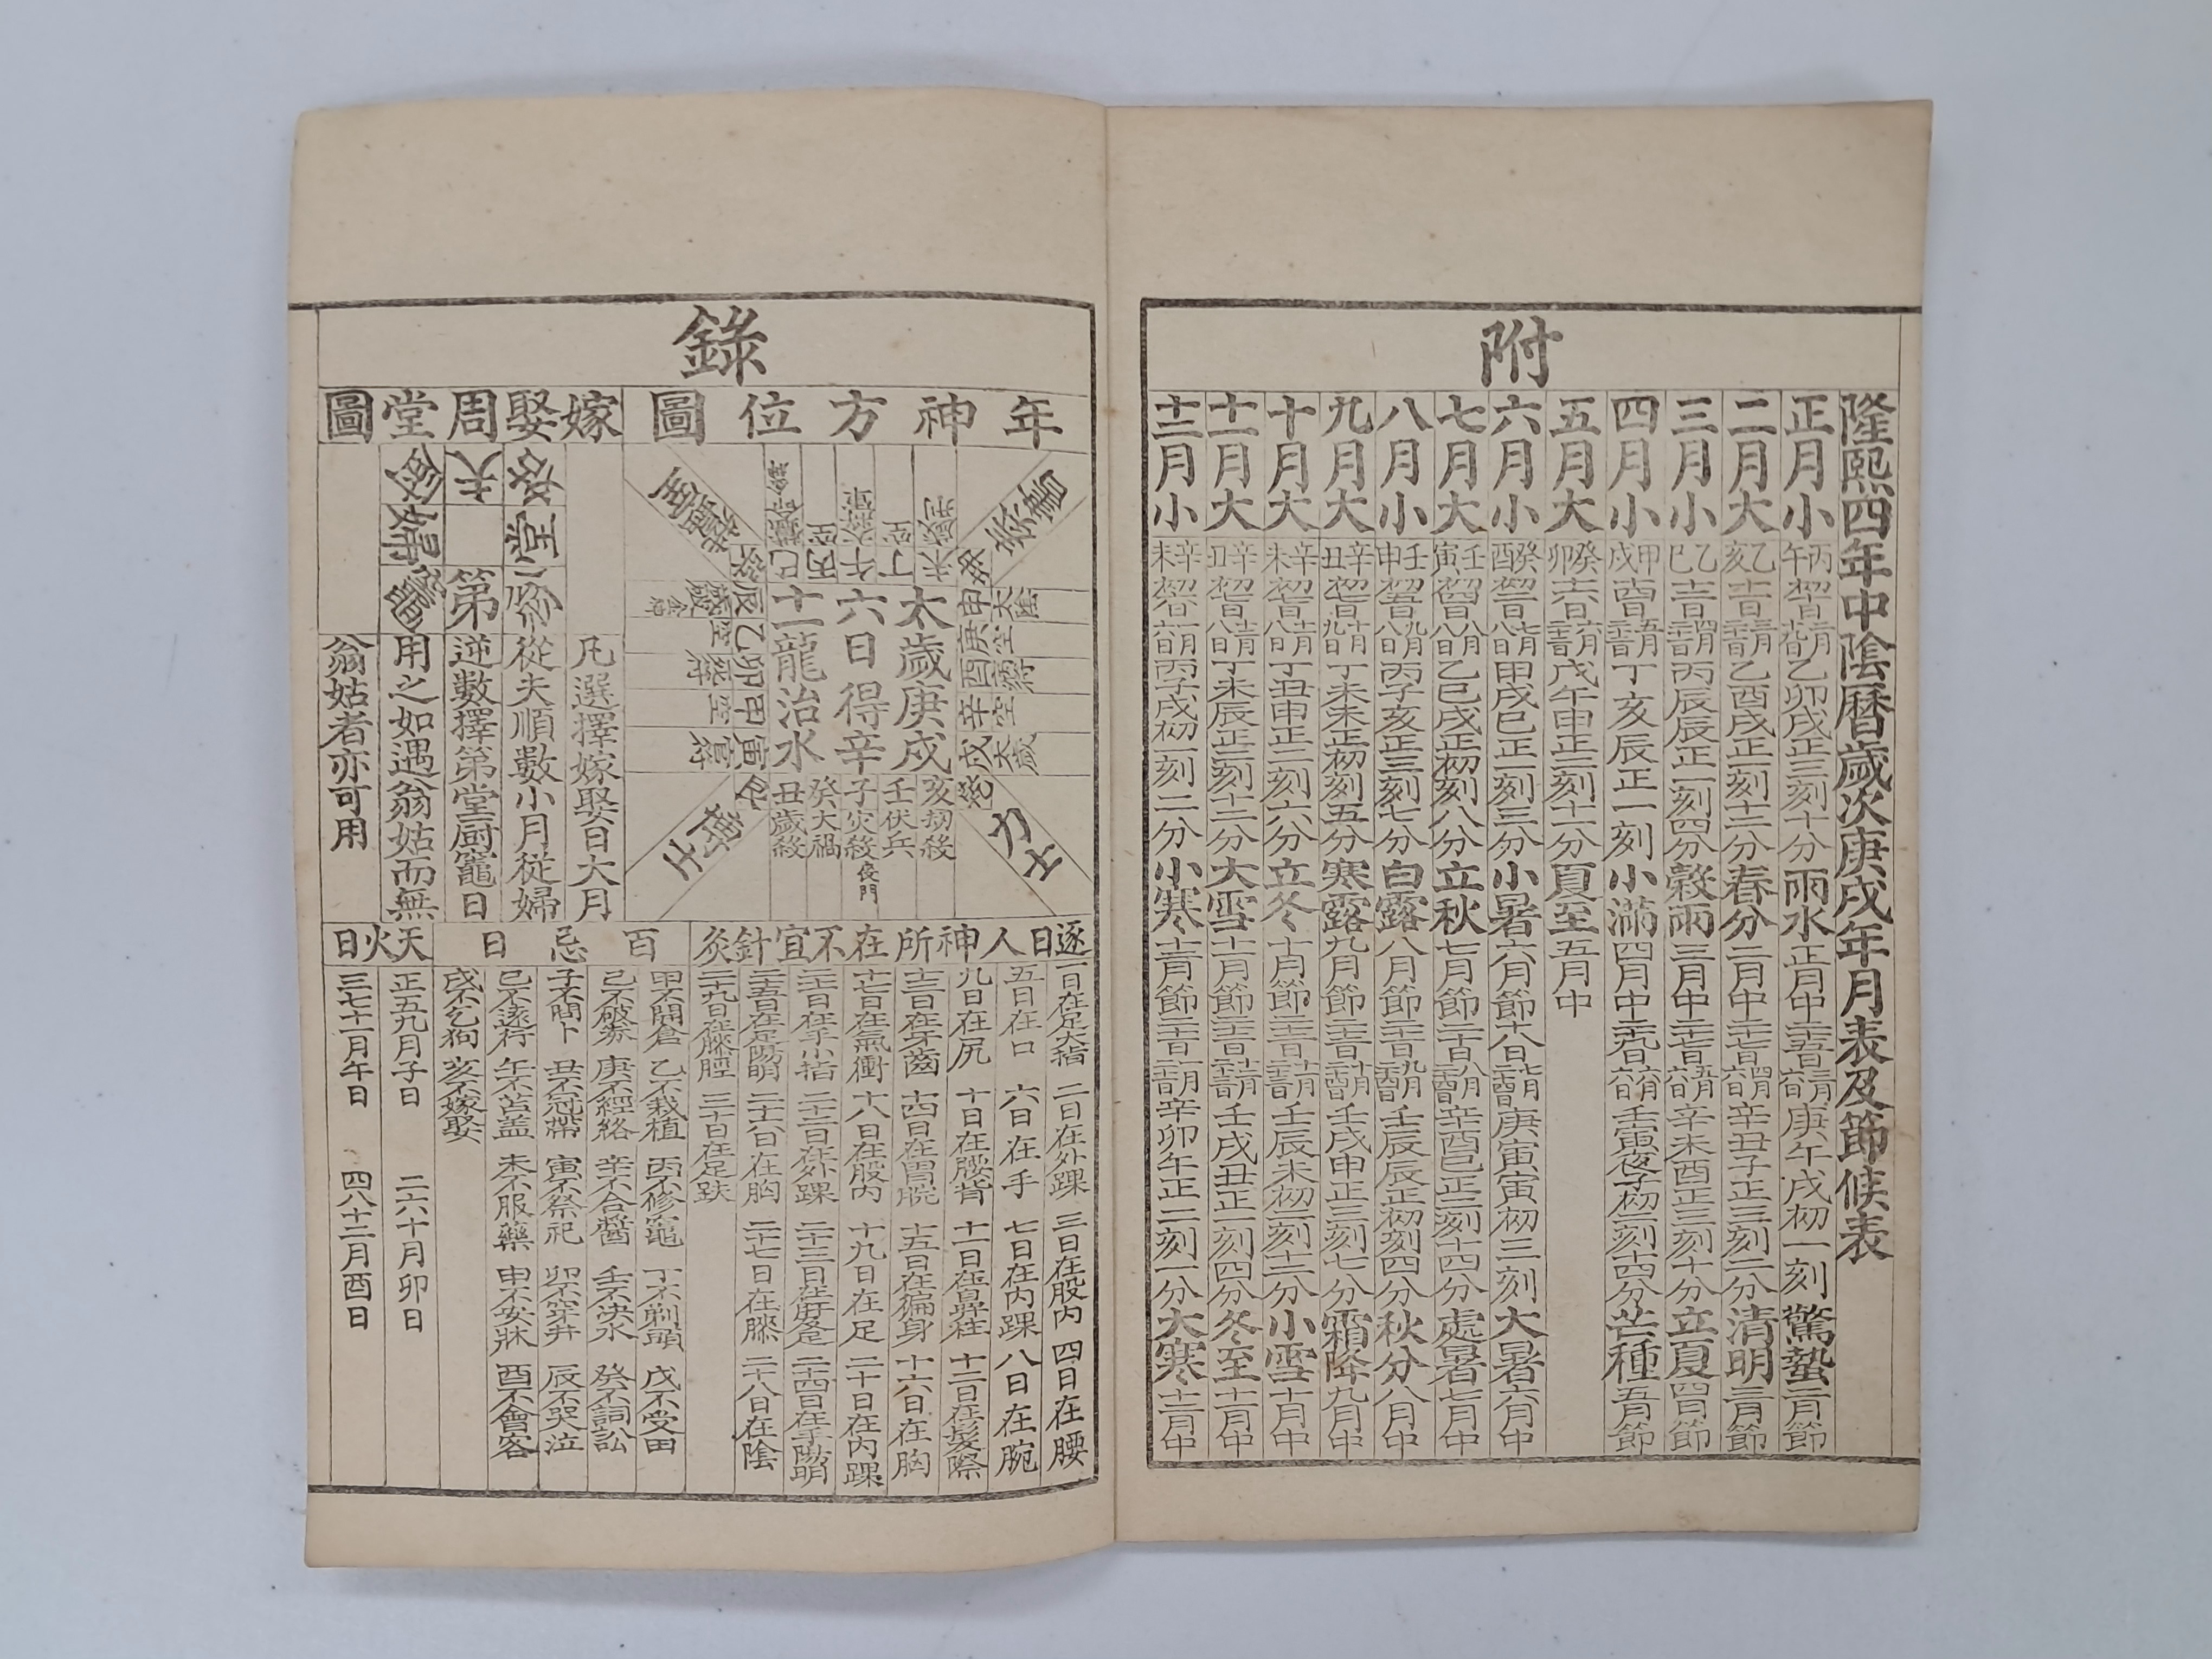 附
隆熙四年中陰曆歲次庚戌年月表及節候表
正月小 丙午 初十日 二月十九日 乙卯戌正三刻十分雨水正月中 二十五日 三月六日 庚午戌初一刻驚蟄二月節
二月大 乙亥 十二日 三月二十一日 乙酉戌正一刻十二分春分二月中 二十七日 四月六日 辛丑子正三刻二分清明三月節
三月小 乙巳 十二日 四月二十一日 丙辰辰正一刻四分穀雨三月中 二十七日 五月六日 辛未酉正三刻十分立夏四月節
四月小 甲戌 十四日 五月二十二日 丁亥辰正一刻小滿四月中 二十九日 六月六日 壬寅夜子初二刻十四分芒種五月節
五月大 癸卯 十六日 六月二十二日 戊午申正三刻十一分夏至五月中
六月小 癸酉 初二日 七月八日 甲戌巳正一刻三分小暑六月節 十八日 七月二十四日 庚寅寅初三刻大暑六月中
七月大 壬寅 初四日 八月八日 乙巳戌正初刻八分立秋七月節 二十日 八月二十四日 辛酉巳正三刻十四分處暑七月中
八月小 壬申 初五日 九月八日 丙子亥正三刻七分白露八月節 二十一日 九月二十四日 壬辰辰正初刻四分秋分八月中
九月大 辛丑 初七日 十月九日 丁未未正初刻五分寒露九月節 二十二日 十月二十四日 壬戌申正三刻七分霜降九月中
十月大 辛未 初七日 十一月八日 丁丑申正三刻六分立冬十月節 二十二日 十一月二十三日 壬辰未初三刻十二分小雪十月中
十一月大 辛丑 初七日 十二月八日 丁未辰正三刻十二分大雪十一月節 二十二日 十二月二十三日 壬戌丑正一刻四分冬至十一月中
十二月小 辛未 初六日 一月六日 丙子戌初一刻二分小寒十二月節 二十一日 一月二十一日 辛卯午正二刻一分大寒十二月中
錄
年神方位圖
奏書
力士
太歲庚戌
六日得辛
十一龍治水
未歲刑
丁空
丙空
申太陰
庚空
辛空
戌太歲
乙空
甲空
亥劫殺
壬伏兵
子灾殺喪門
癸大禍
丑歲殺
嫁娶周堂圖
夫
堂
第
凡選擇嫁娶日大月
從夫順數小月從婦
逆數擇第堂廚竈日
用之如遇翁姑而無
翁姑者亦可用
逐日人神所在不宜針灸
一日在足大指 二日在外踝 三日在股內 四日在腰
五日在口 六日在手 七日在內踝 八日在腕
九日在尻 十日在腰背 十一日在鼻柱 十二日在髮際
十三日在牙齒 十四日在胃脘 十五日在徧身 十六日在胸
十七日在氣衝 十八日在股內 十九日在足 二十日在內踝
二十一日在手小指 二十二日在外踝 二十三日在肝及足 二十四日在手陽明
二十五日在足陽明 二十六日在胸 二十七日在膝 二十八日在陰
二十九日在膝脛 三十日在足趺
百忌日
甲不開倉 乙不栽植 丙不修竈 丁不剃頭 戊不受田
己不破券 庚不經絡 辛不合醬 壬不決水 癸不詞訟
子不問卜 丑不冠帶 寅不祭祀 卯不穿井 辰不哭泣
巳不遠行 午不苫盖 未不服藥 申不安牀 酉不會客
戌不乞狗 亥不嫁娶
天火日
正五九月子日 二六十月卯日
三七十一月午日 四八十二月酉日